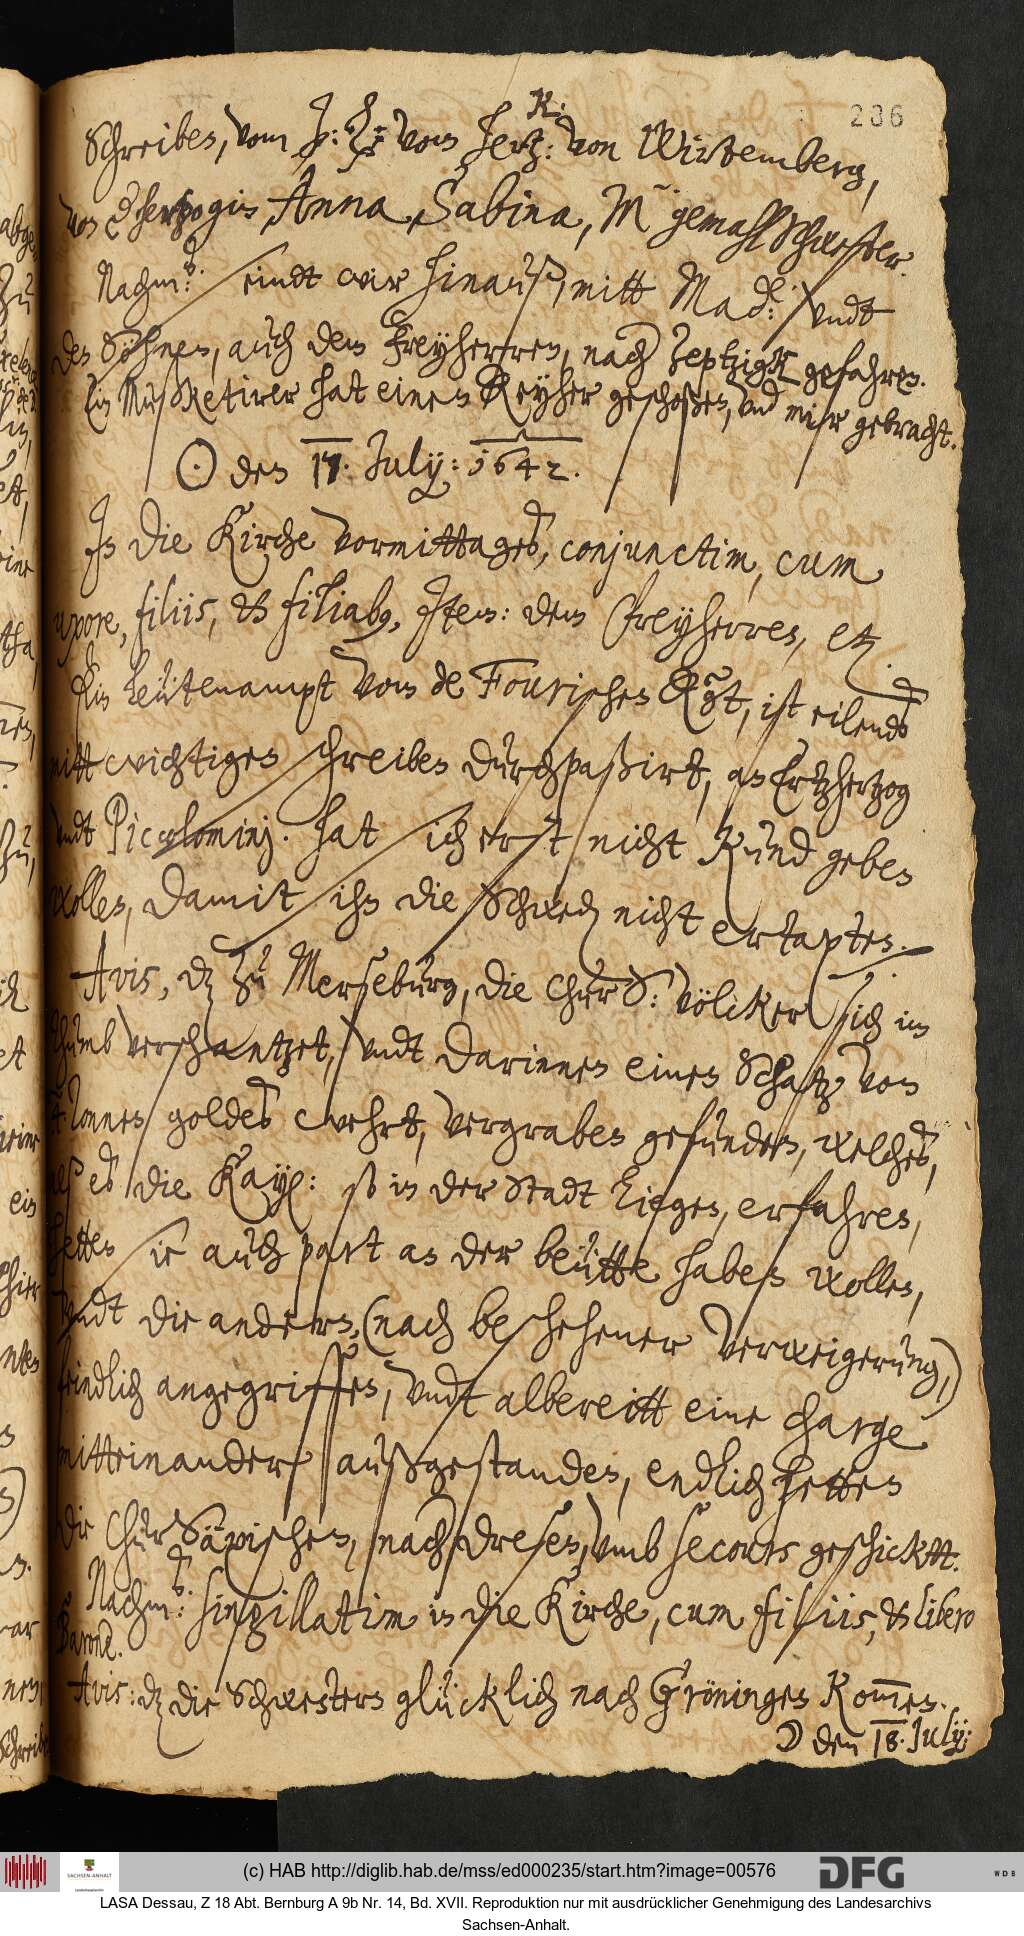 236
Schreiben, vom H: von Hertz: von Wirtemberg,
K:
von hertzogin Anna Sabina, gemahl Schwester.
Nachm: seindt wir hinauß, mitt Mad: undt
den Söhnen, auch dem Freyherren, nach Zeptzigk gefahren.
Ein Mußketirer hat einen Reyher geschoßen, und mir gebracht.
☉ den 17. July: 1642.
In die Kirche vormittages, conjunctim, cum
uxore, filiis, & filiabus, Item: dem Freyherren, etc.
Ein Leütenampt vom de Fourischen Regt, ist eilends
mitt wichtigen schreiben durchpaßirt, an Ertzhertzog
undt Piccolominj. hat sich erst nicht kund geben
wollen, damit ihn die Schwed nicht ertapten.
Avis, dz zu Merseburg, die ChurS: völcker sich im
thumb verschantzet, undt darinnen einen Schatz von
4 Tonnen goldes wehrt, vergraben gefunden, welches,
alß es die Kay: so in der Stadt liegen, erfahren,
hetten sie auch part an der beütte haben wollen,
undt die andern, (nach beschehener verweigerung,)
feindlich angegriffen, undt albereitt eine charge
mitteinander außgestanden, endlich hetten
die ChurSäxischen, nach Dresen, umb secours geschicktt.
Nachm: singillatim in die Kirche, cum filiis, & libero
Barone.
Avis: dz die Schwestern glücklich nach Gröningen kommen.
☽ den 18. July:
(c) HAB http://diglib.hab.de/mss/ed000235/start.htm?image=00576
SACHSEN-ANHALT
DFG
WDB
LASA Dessau, Z 18 Abt. Bernburg A 9b Nr. 14, Bd. XVII. Reproduktion nur mit ausdrücklicher Genehmigung des Landesarchivs
Sachsen-Anhalt.